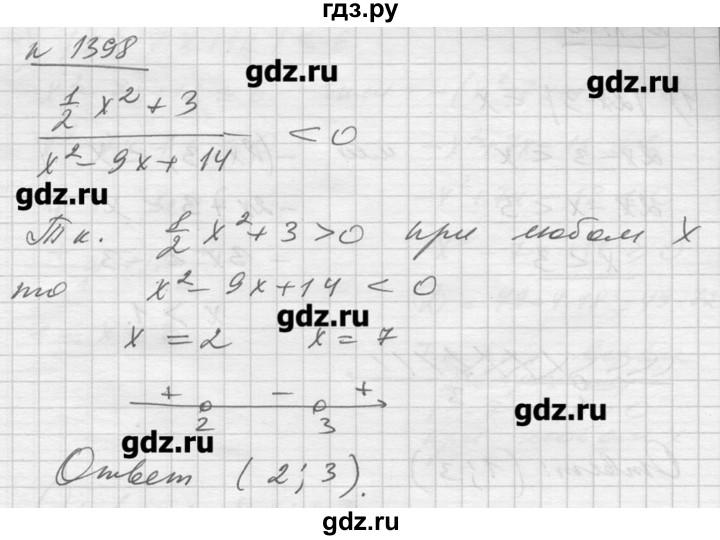 гдз.ру
n 1398
gdz.ru
gdz.ru
(1/2 x² + 3)/(x² - 9x + 14) < 0
gdz.ru
Т к. 1/2 x² + 3 > 0 при любом x
то x² - 9x + 14 < 0
gdz.ru
x = 2 x = 7
+ - +
2 3
gdz.ru
gdz.ru
Ответ (2; 3).
gdz.ru